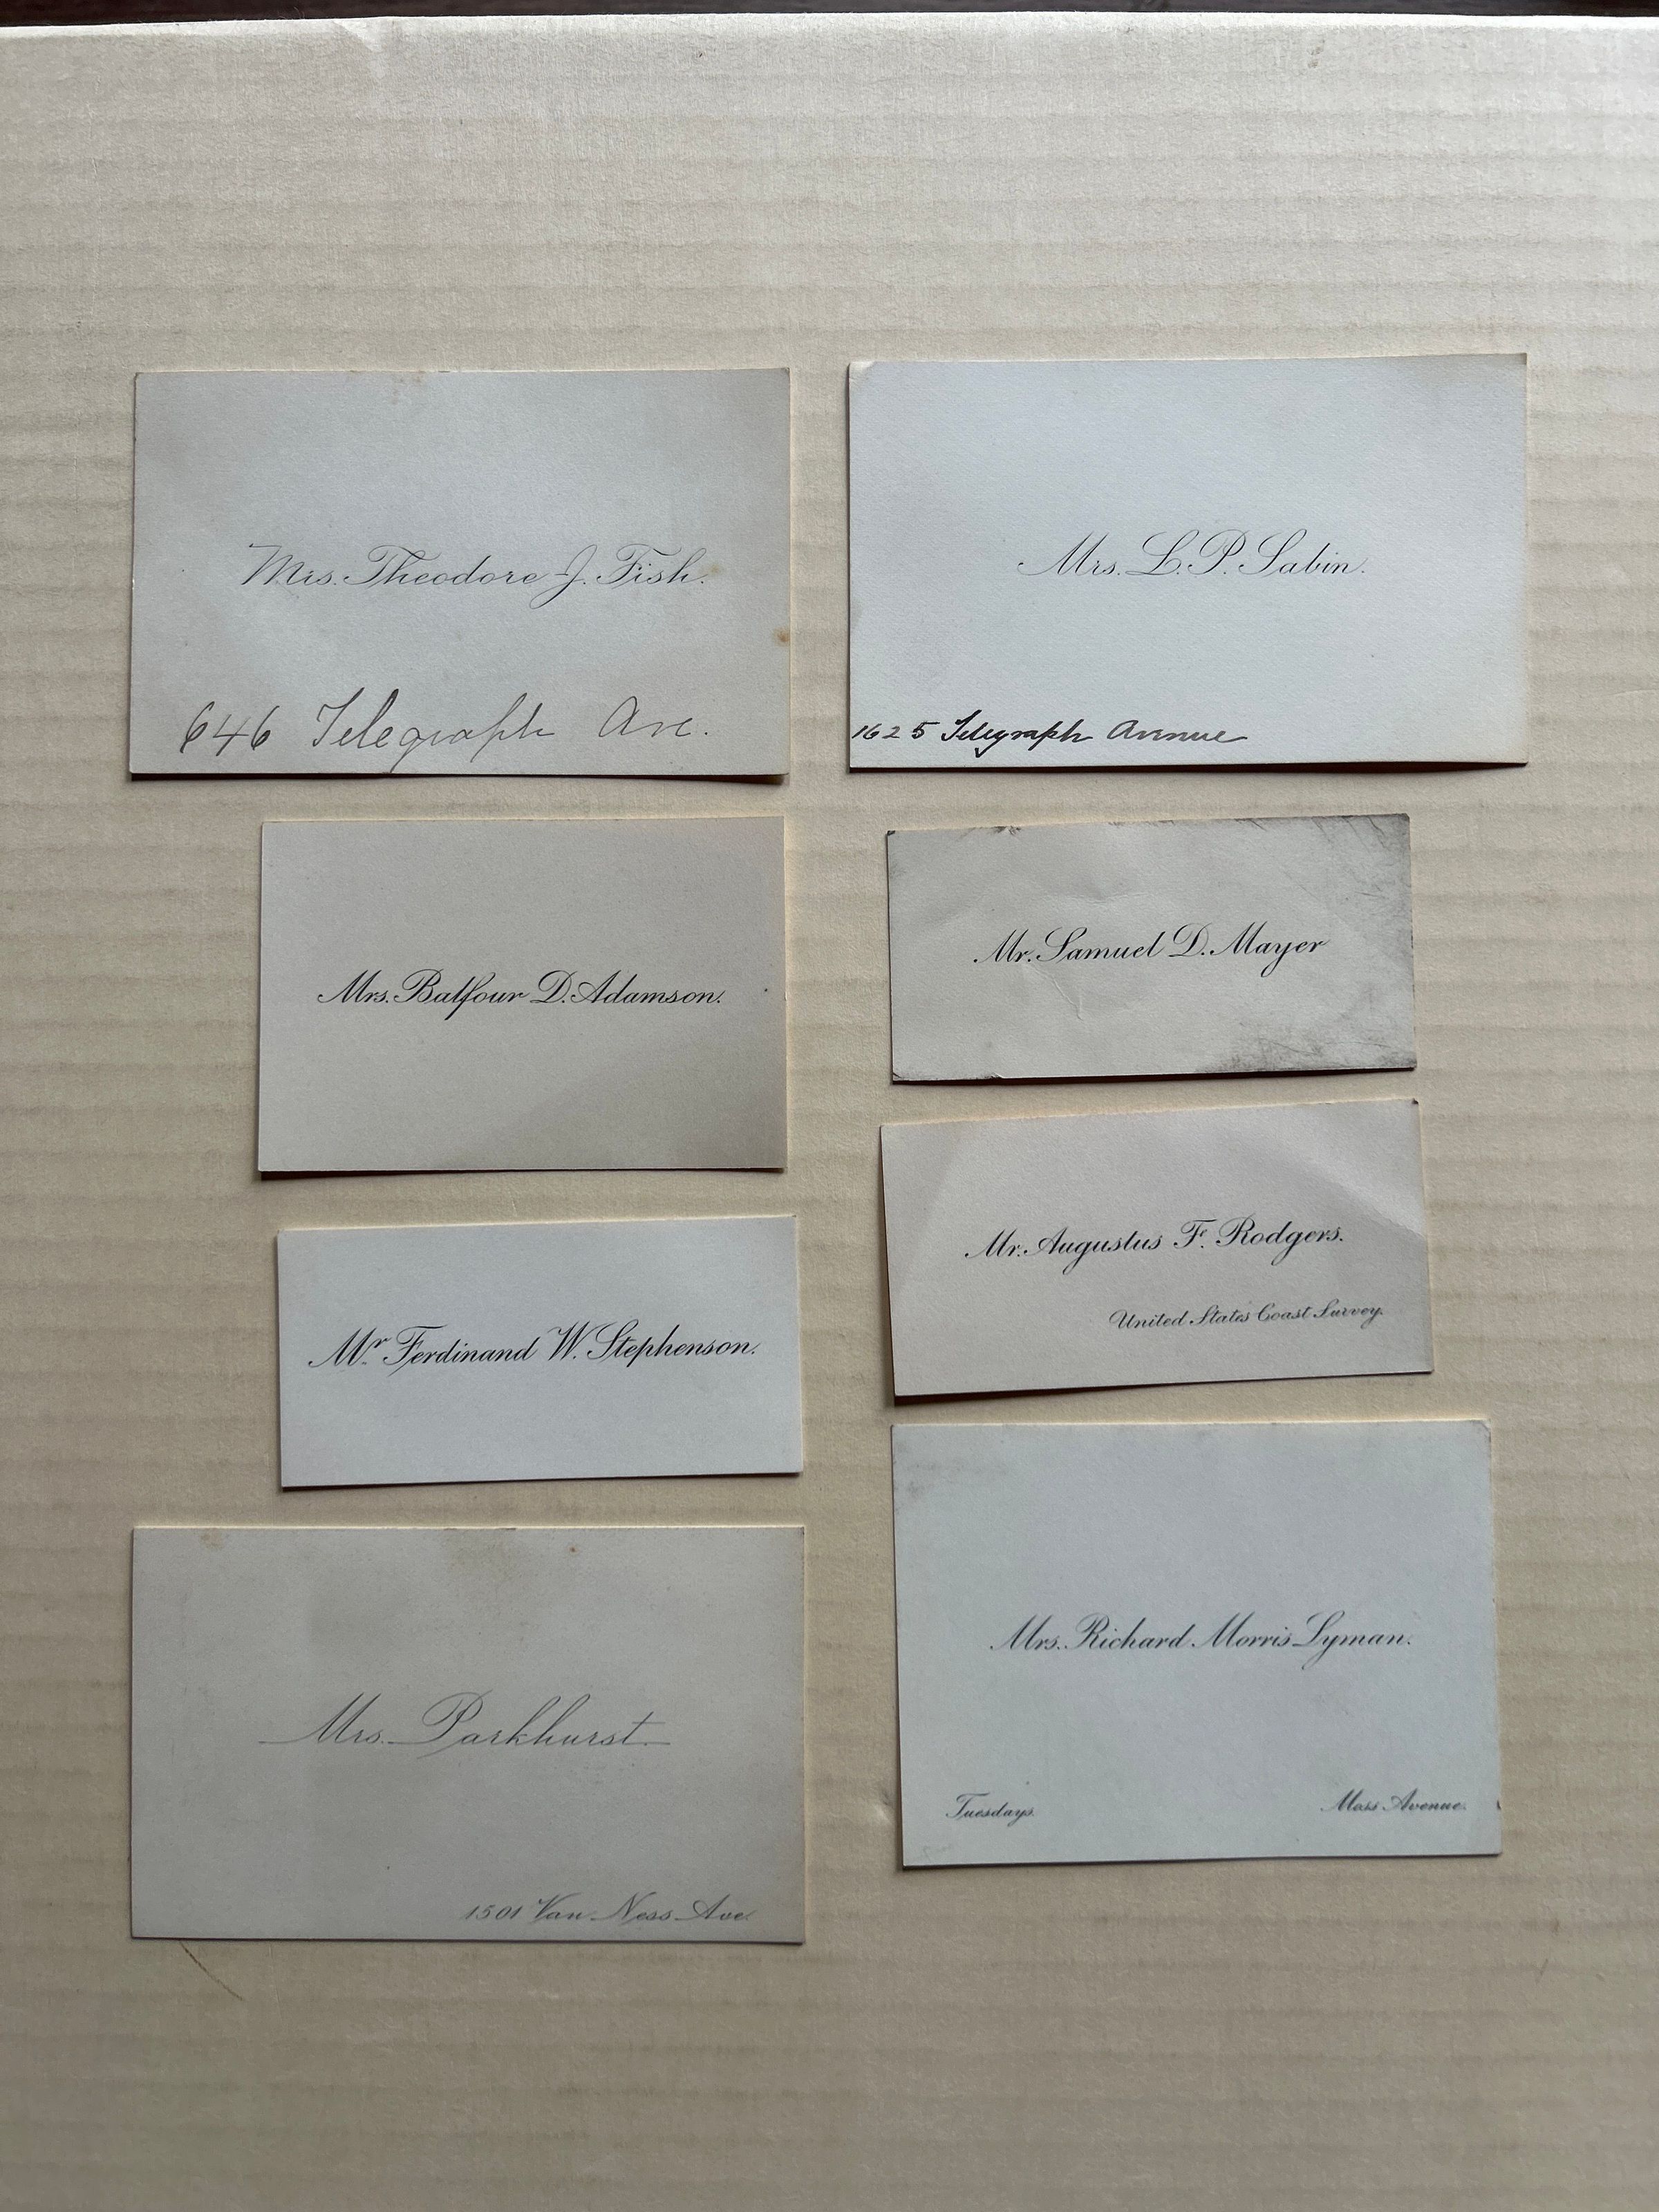 Mrs. Theodore J. Fish.
646 Telegraph Ave.
Mrs. L. P. Sabin.
1625 Telegraph Avenue
Mrs. Balfour D. Adamson.
Mr. Samuel D. Mayer
Mr. Augustus F. Rodgers.
United States Coast Survey.
Mr. Ferdinand W. Stephenson.
Mrs. Richard Morris Lyman.
Tuesdays.
Moss Avenue.
Mrs. Parkhurst.
1501 Van Ness Ave.